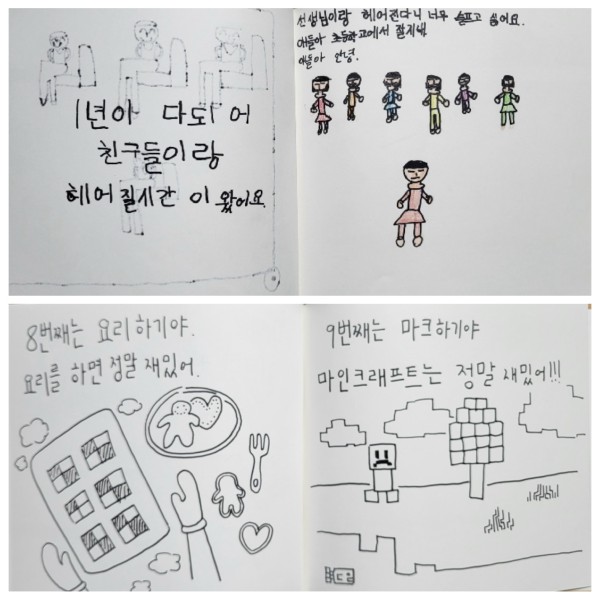 1년이 다되어
친구들이랑
헤어질시간 이 왔어요.
선생님이랑 헤어진다니 너무 슬프고 싫어요.
얘들아 초등학교에서 잘지내
얘들아 안녕.
8번째는 요리하기야.
요리를 하면 정말 재밌어.
9번째는 마크하기야
마인크래프트는 정말 재밌어!!!